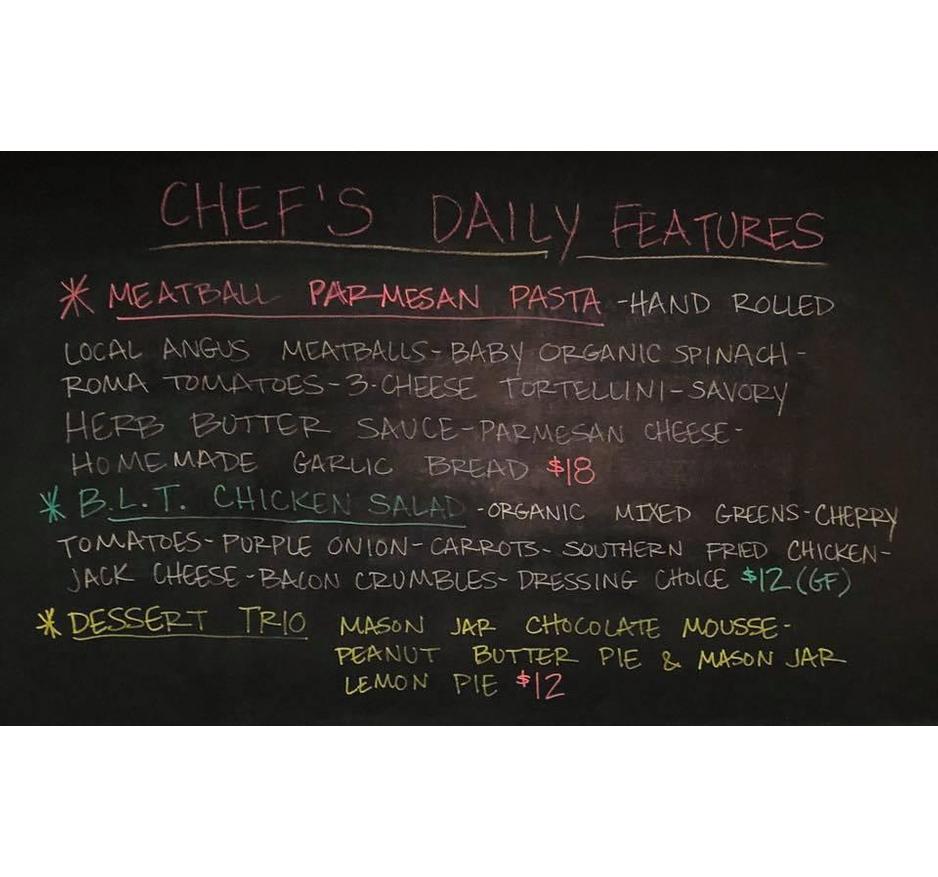 CHEF'S DAILY FEATURES
* MEATBALL PARMESAN PASTA -HAND ROLLED
LOCAL ANGUS MEATBALLS-BABY ORGANIC SPINACH-
ROMA TOMATOES-3-CHEESE TORTELLINI-SAVORY
HERB BUTTER SAUCE-PARMESAN CHEESE-
HOMEMADE GARLIC BREAD $18
* B.L.T. CHICKEN SALAD -ORGANIC MIXED GREENS-CHERRY
TOMATOES-PURPLE ONION-CARROTS-SOUTHERN FRIED CHICKEN-
JACK CHEESE-BACON CRUMBLES-DRESSING CHOICE $12 (GF)
* DESSERT TRIO MASON JAR CHOCOLATE MOUSSE-
PEANUT BUTTER PIE & MASON JAR
LEMON PIE $12